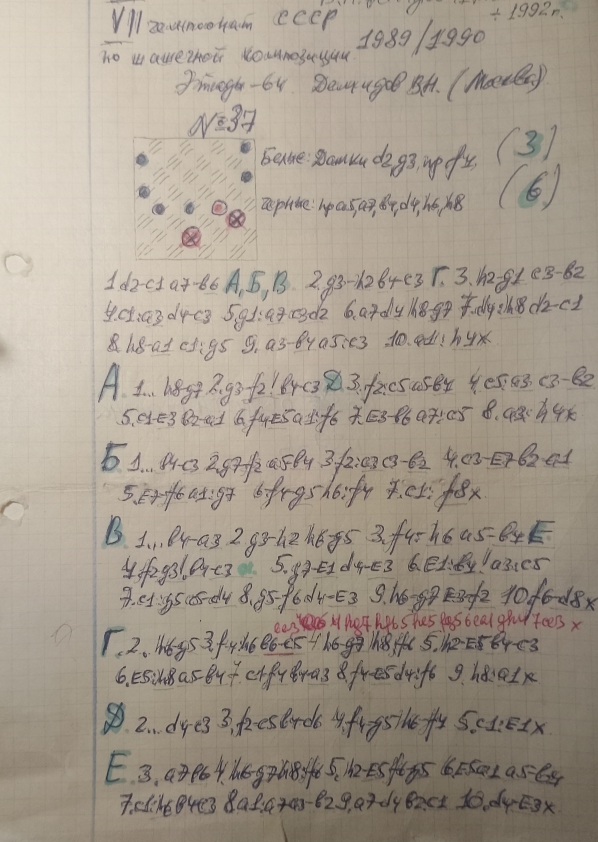 ÷ 1992г.
VII чемпионат СССР
по шашечной композиции 1989/1990
Этюды-64. Демидов В.Н. (Москва)
№37
Белые: Дамки d2, g3, пр f4. (3)
Черные: пр a5, a7, b4, d4, h6, h8 (6)
1 d2-c1 a7-b6 А, Б, В 2. g3-h2 b4-c3 Г. 3. h2-g1 c3-b2
4. c1:a3 d4-c3 5. g1:a7 c3-d2 6. a7-d4 h8-g7 7. d4:h8 d2-c1
8. h8-a1 c1:g5 9. a3-b4 a5:c3 10. a1:h4x
А 1... h8-g7 2. g3-f2! b4-c3 Д 3. f2:c5 a5-b4 4. c5:a3 c3-b2
5. c1-E3 b2-a1 6. f4-E5 a1:f6 7. E3-b6 a7:c5 8. a3:h4x
Б 1... b4-c3 2. g7-f2 a5-b4 3. f2:a3 c3-b2 4. c3-E7 b2-a1
5. E7-f6 a1:g7 6. f4-g5 h6:f4 7. c1:f8x
В 1...b4-a3 2 g3-h2 h6-g5 3. f4:h6 a5-b4 Е
4. f2g3! b4-c3 5. g7-E1 d4-E3 6. E1:b4! a3:c5
7. c1:g5 c5-d4 8. g5-f6 d4-E3 9. h6-g7 E3-f2 10. f6-d8x
Г. 2. h6-g5 3. f4 h6 b6-c5 4 h6-g7 h8:f6 5. h2-E5 b4-c3
6. E5:h8 a5-b4 7. c1 f4 b4-a3 8. f4-E5 d4:f6 9. h8:a1x
Д 2... d4-c3 3. f2-c5 b4 d6 4. f4-g5 h6-f4 5. c1:E1x
Е 3. a7 b6 4. h6-g7 h8:f6 5. h2-E5 f6-g5 6. E5 a1 a5-b4
7. c1:h6 b4-c3 8 a1:a7 a3-b2 9. a7 d4 b2 c1 10. d4-E3x